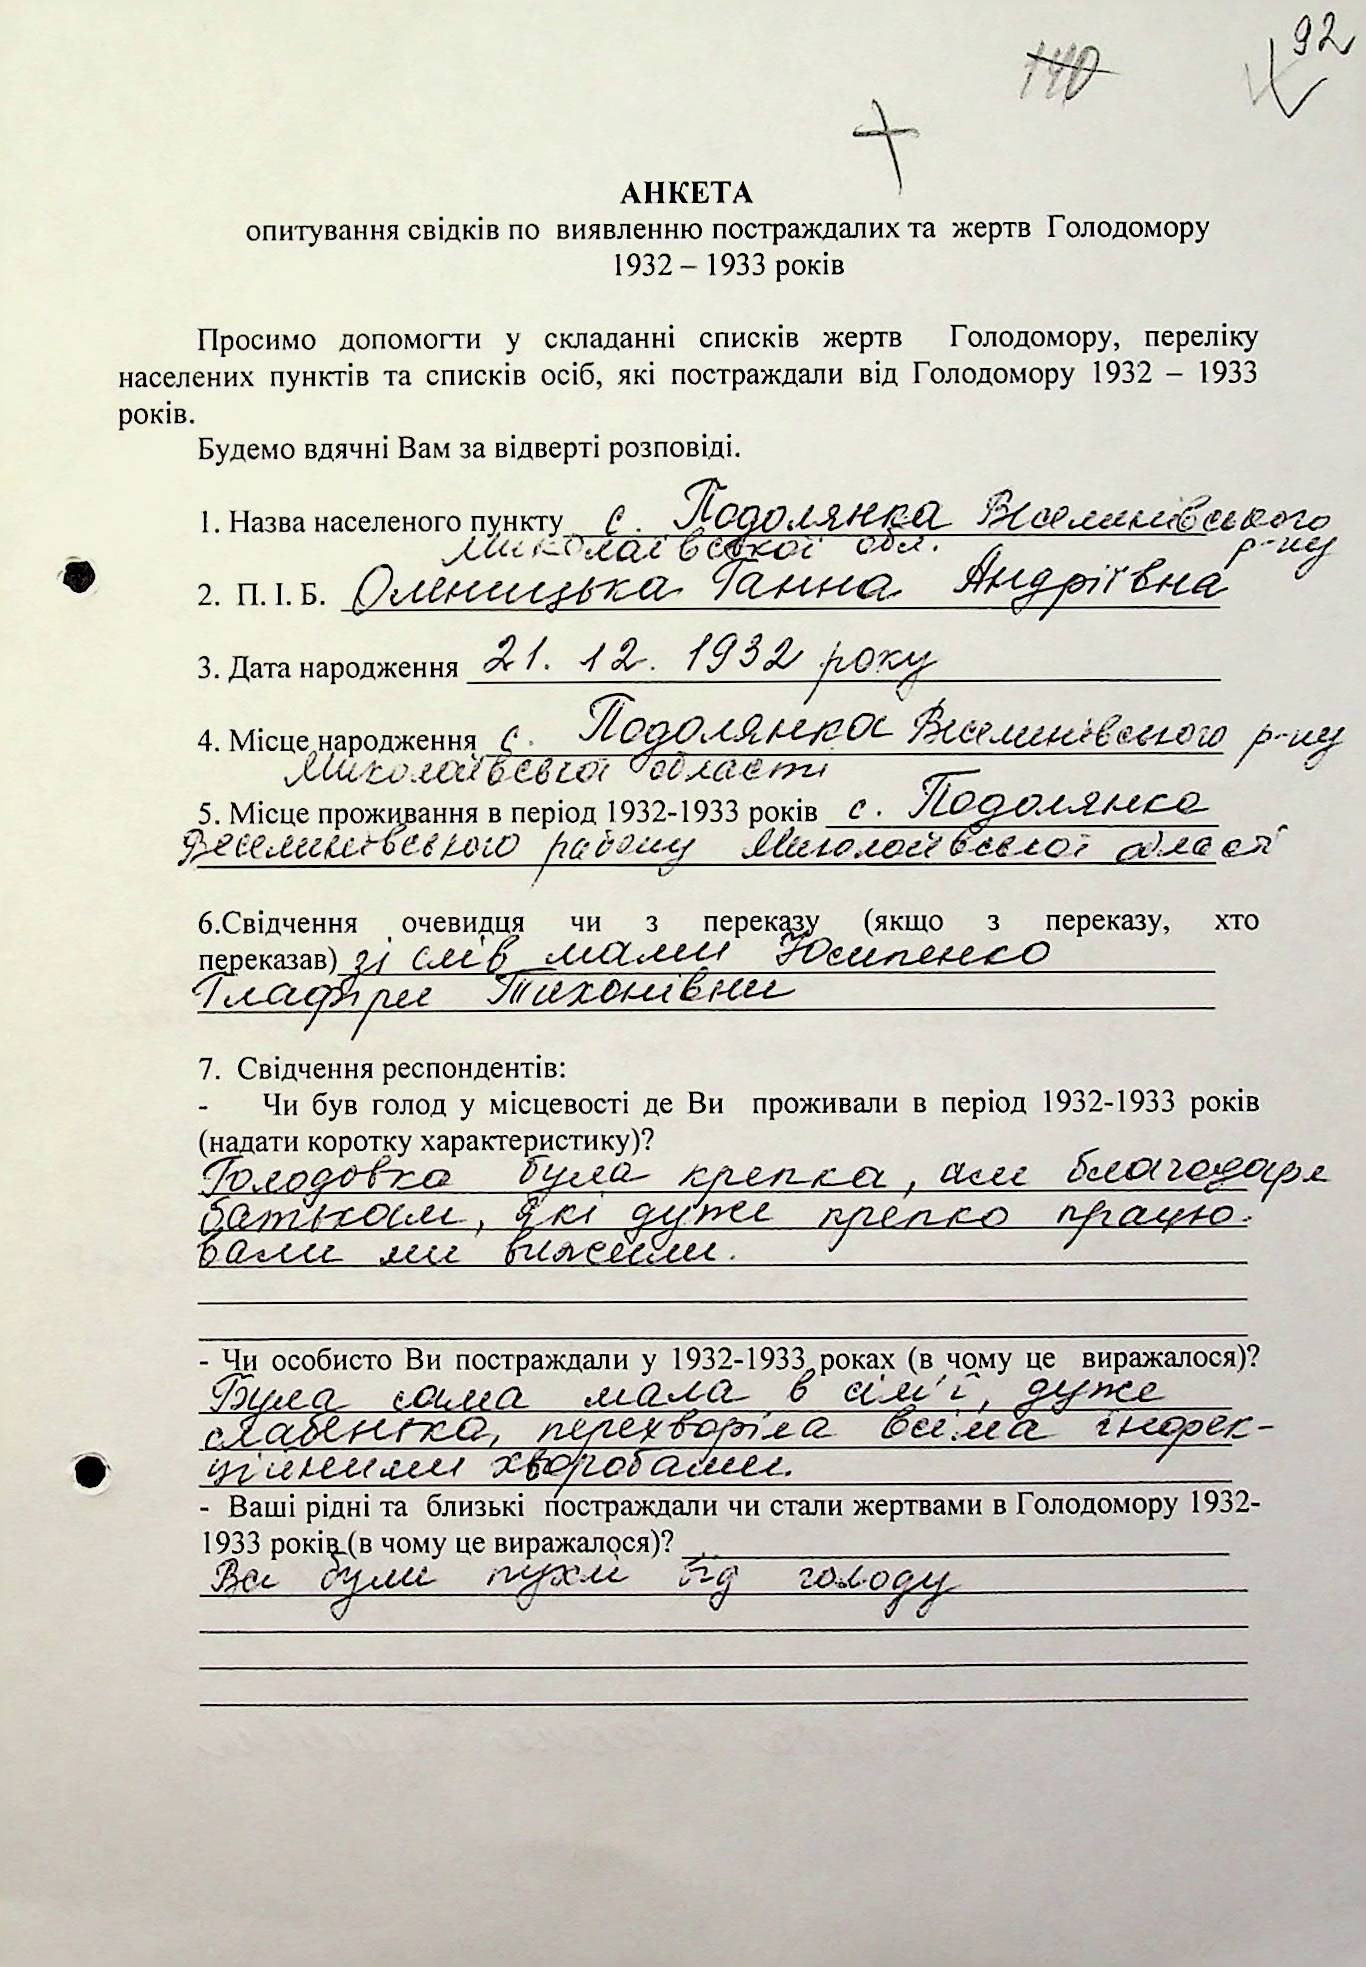 92
140
АНКЕТА
опитування свідків по виявленню постраждалих та жертв Голодомору
1932 – 1933 років
Просимо допомогти у складанні списків жертв Голодомору, переліку
населених пунктів та списків осіб, які постраждали від Голодомору 1932 – 1933
років.
Будемо вдячні Вам за відверті розповіді.
1. Назва населеного пункту с. Подолянка Веселинівського
Миколаївської обл. р-ну
2. П. І. Б. Оленицька Ганна Андріївна
3. Дата народження 21. 12. 1932 року
4. Місце народження с. Подолянка Веселинівського р-ну
Миколаївської області
5. Місце проживання в період 1932-1933 років с. Подолянка
Веселинівського району Миколаївської області
6.Свідчення очевидця чи з переказу (якщо з переказу, хто
переказав) зі слів мами Юсипенко
Глафіри Тихонівни
7. Свідчення респондентів:
- Чи був голод у місцевості де Ви проживали в період 1932-1933 років
(надати коротку характеристику)?
Голодовка була крепка, але благодаря
батькам, які дуже крепко працю-
вали ми вижили.
- Чи особисто Ви постраждали у 1932-1933 роках (в чому це виражалося)?
Була сама мала в сім'ї, дуже
слабенька, перехворіла всіма інфек-
ційними хворобами.
- Ваші рідні та близькі постраждали чи стали жертвами в Голодомору 1932-
1933 років (в чому це виражалося)?
Всі були пухлі від голоду